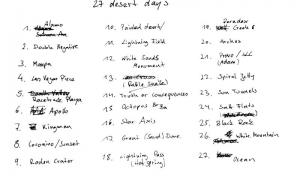 27 desert days
1. Alamo
2. Double Negative
3. Moapa
4. Las Vegas Piece
5. Racetrack Playa
6. Apollo
7. Kingman
8. Coromino/Sunset
9. Roden Crater
10. Painted desert/
11. Lightning Field
12. White Sands Monument
13.
14. Truth or Consequences
15. Octopus
16. Star Axis
17. Great (Sand) Dune
18. Lightning Pass
(Hot spring)
19. Paradox
20. Arches
21. Provo / SLC
(Adam)
22. Spiral Jetty
23. Sun Tunnels
24. Salt Flats
25. Black Rock
26. White Mountain
27. Ocean